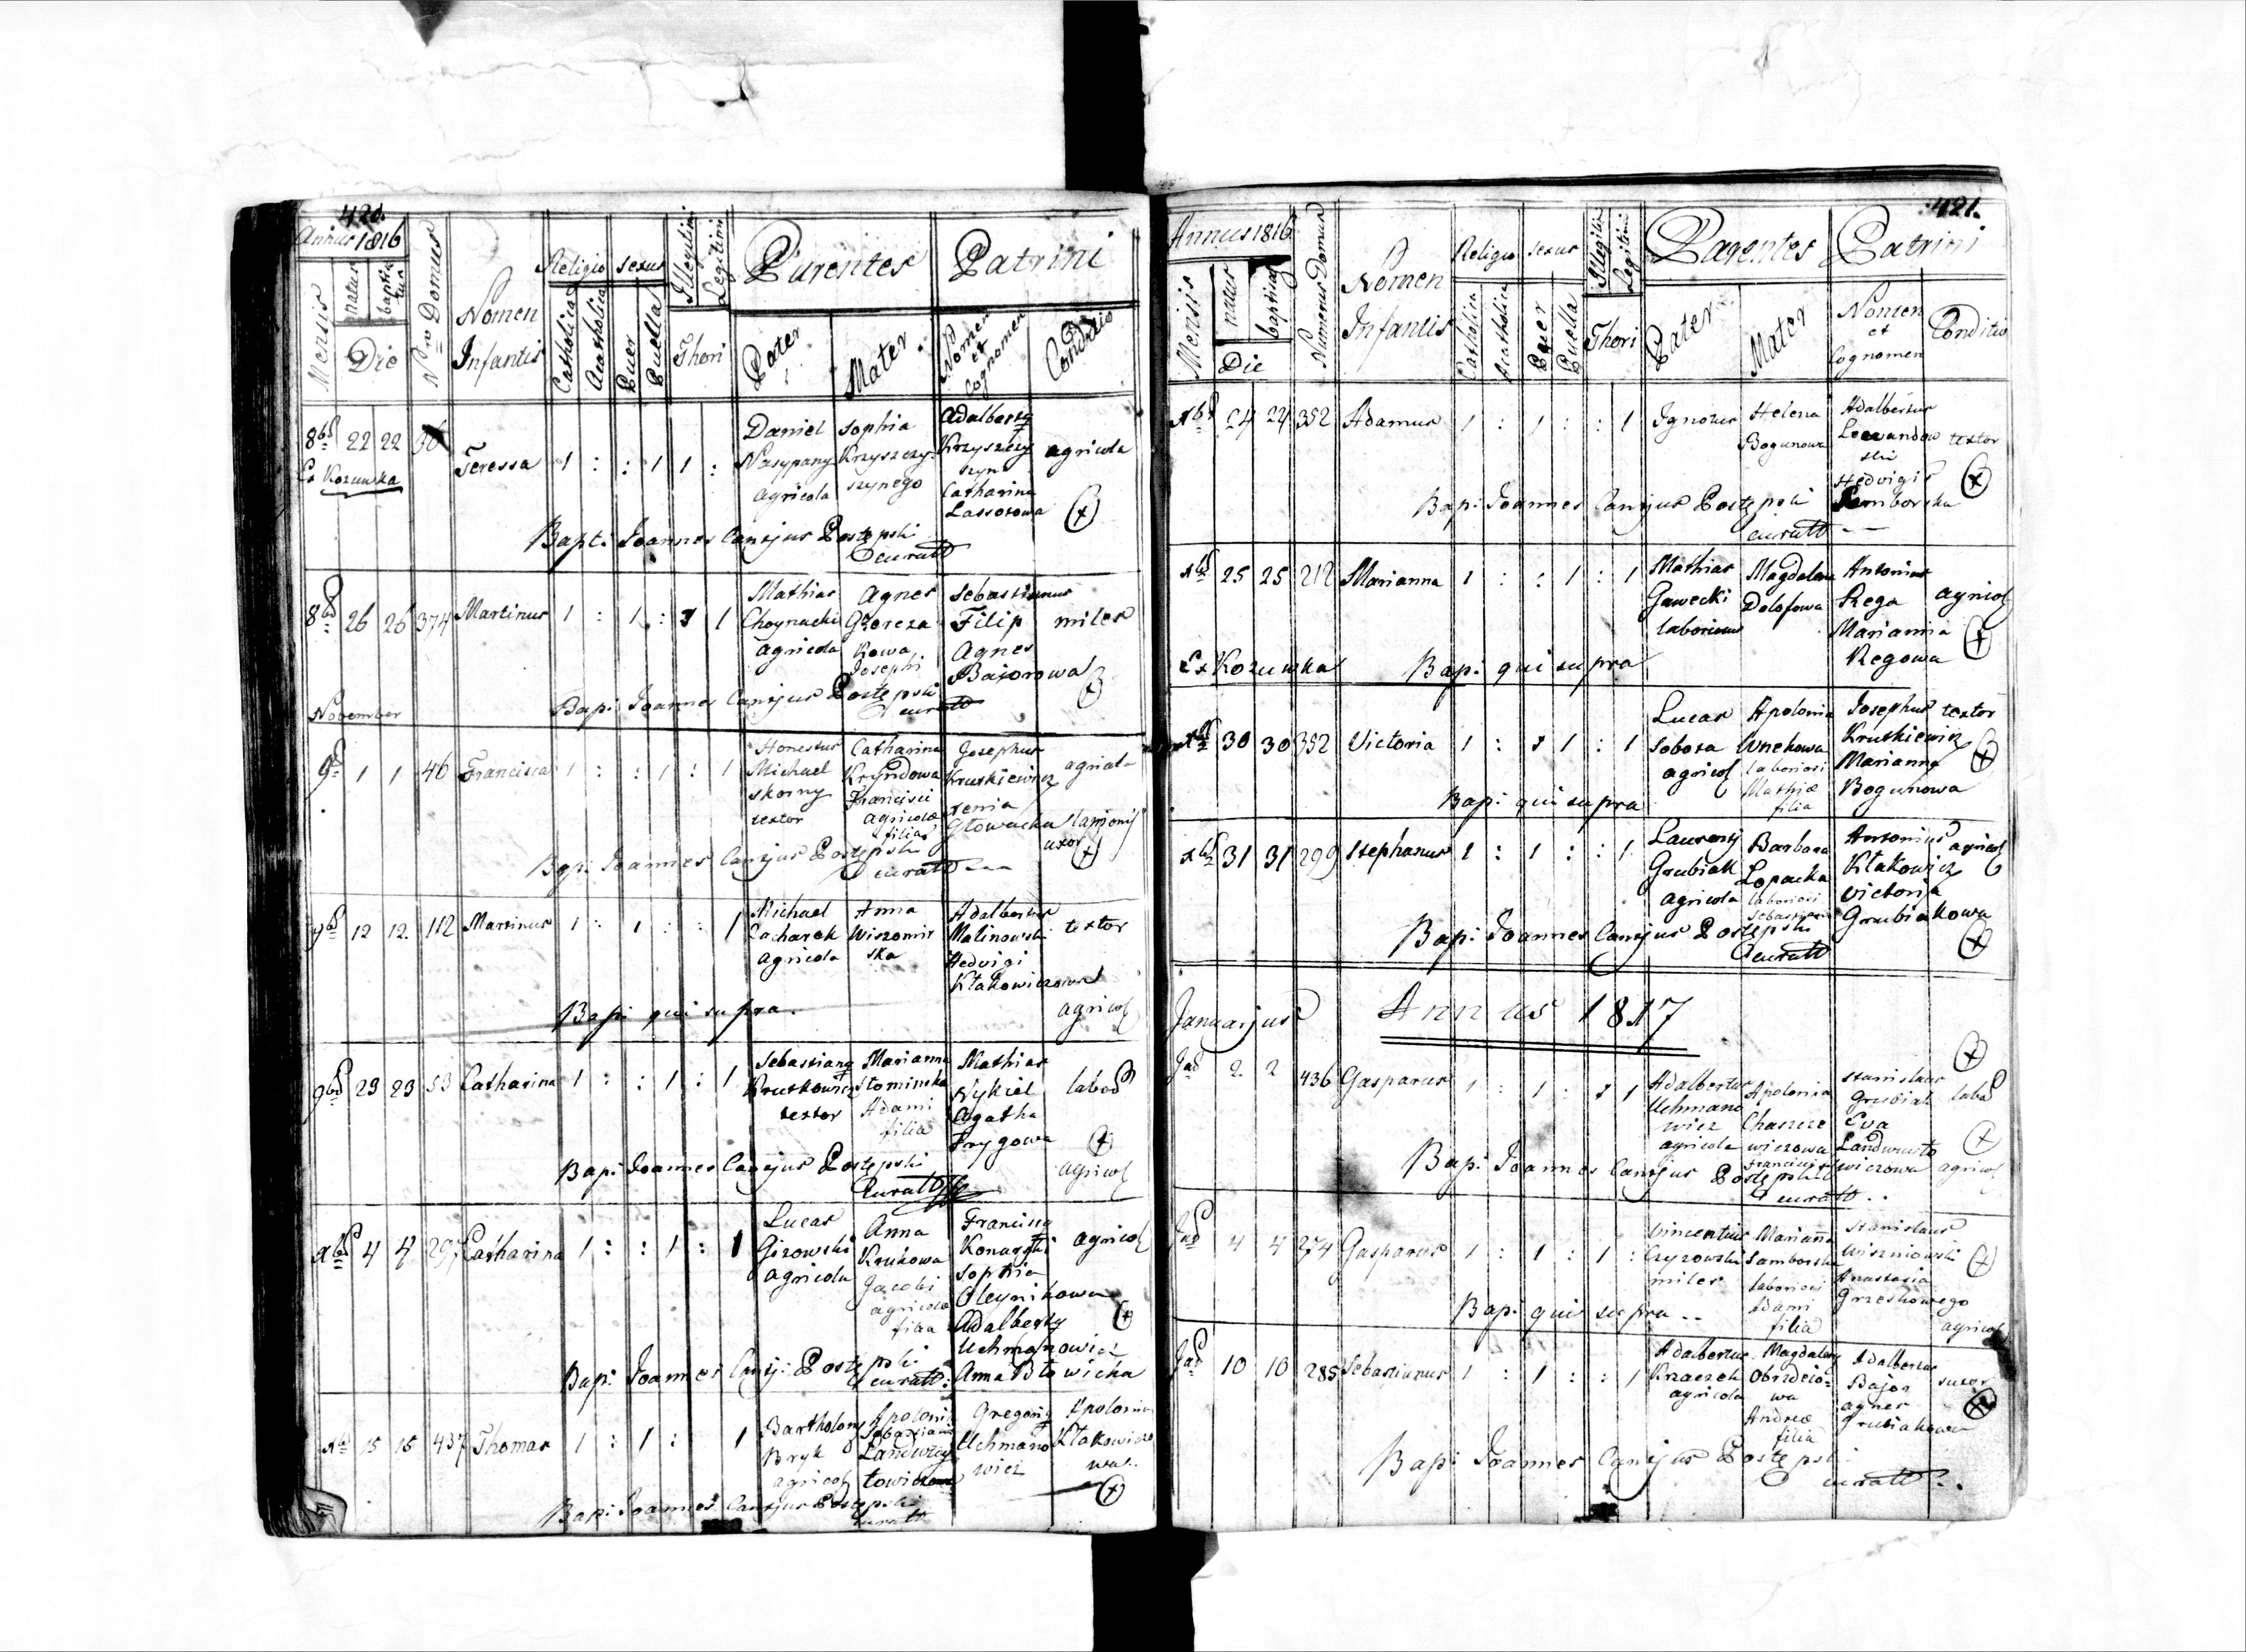 420.
Annus 1816
Mensis
natus
baptisa
tus
Die
Nro Domus
Nomen
Infantis
Religio
Catholica
Acatholica
sexus
Puer
Puella
Illegitimi
Legitimi
Thori
Parentes
Pater
Mater
Patrini
Nomen
et
Cognomen
Conditio
8bris 22 22 Teressa 1 : : 1 1 :
Ex Kozuwka
Daniel
Nasypany
agricola
Sophia
Krzyszczy-
szynego
Adalbertg
Krzyszczy
szyn
Catharina
Lassotowa
agricola
Bapt: Joannes Cantjus Postępski
Curatt
8bris 26 26 374 Martinus 1 : 1 : 1
Mathias
Choynacki
agricola
Agnes
Kowa
Josephi
Sebastianus
Filip
Agnes
Bajorowa
miles
Bap: Joannes Cantjus Postępski
Curatt
November
9bris 1 1 46 Francisca 1 : : 1 : 1
Honestus
Michael
Skorny
textor
Catharina
Kryndowa
Francisci
agricolæ
filia
Josephus
Kruskiewicz
xenia
Głowacka
agricola
lanionis
uxor
Bap: Joannes Cantjus Postępski
Curatt
9bris 12 12. 112 Martinus 1 : 1 : : 1
Michael
Zacharek
agricola
Anna
Wiszomir
ska
Adalbertus
Malinowski
Hedvigi
Kłakowiczowa
textor
agricol
Bap: qui supra.
9bris 23 23 53 Catharina 1 : : 1 : 1
Sebastiang
Krutkowicz
textor
Marianna
Słominska
Adami
filia
Mathias
Nykiel
Agatha
Frygowa
labor
agricol
Bap: Joannes Cantjus Postępski
Curatt
Xbris 4 4 297 Catharina 1 : : 1 : 1
Lucas
Gizowski
agricola
Anna
Krukowa
Jacobi
agricolæ
filia
Franciscg
Konarski
Sophia
Oleynikowa
Adalbertg
Uchmanowicz
Anna Błowicka
agricol
Bap: Joannes Cantj: Postępski
Curatt:
Xbris 15 15 437 Thomas 1 : 1 : 1
Bartholomg
Bryk
agricol
Apolonia
Sebastiani
Landwoy
towiczowa
Gregorig
Uchmano
wicz
Apolonia
Kłakowiczo
wa..
Bap: Joannes Cantjus Postępski
Curatt
421.
Annus 1816
Mensis
natus
baptisatus
Die
Numerus Domus
Nomen
Infantis
Religio
Catholica
Acatholica
sexus
Puer
Puella
Illegitimi
Legitimi
Thori
Parentes
Pater
Mater
Patrini
Nomen
et
Cognomen
Conditio
Xbris 24 24 352 Adamus 1 : 1 : : 1
Ignotus
Helena
Bogunowa
Adalbertus
Lewandow
ski
Hedvigis
Samborska
textor
Bap: Joannes Cantjus Postępski
Curatt
Xbris 25 25 212 Marianna 1 : : 1 : 1
Mathias
Gawecki
laboriosus
Magdalena
Dolofowa
Antonius
Rega
Marianna
Regowa
agricol
Ex Kozuwka Bap: qui supra
Xbris 30 30 352 Victoria 1 : 1 : 1
Lucas
Sobota
agricol
Apolonia
Wnekowa
laboriosi
Mathiæ
filia
Josephus
Kruskiewicz
Marianna
Bogunowa
textor
Bap: qui supra
Xbris 31 31 299 Stephanus 1 : 1 : : 1
Laurentj
Grubiak
agricola
Barbara
Lopacka
laboriosi
Sebastiani
Antonius
Kłakowicz
Victoria
Grubiakowa
agricol
Bap: Joannes Cantjus Postępski
Curatt
Annus 1817
Januarjus
Jas 2 2 436 Gasparus 1 : 1 : 1
Adalbertus
Uchmano
wicz
agricola
Apolonia
Chaszcze
wiczowa
Francisci
Stanislaus
Grubiak
Eva
Landwoyto
wiczowa
labor
agricol
Bap: Joannes Cantjus Postępski
Curatt..
Jas 4 4 274 Gasparus 1 : 1 : 1 :
Vincentius
Czyzowski
miles
Marianna
Samborska
laboriosi
Adami
filia
Stanislaus
Wiszniowski
Anastasia
Grzeskowego
agricol
Bap: qui supra..
Jas 10 10 285 Sebastianus 1 : 1 : : 1
Adalbertus
Krzaczek
agricola
Magdalena
Obrzdcio=
wa
Andreæ
filia
Adalbertus
Bajor
agnes
Grubiakowa
sutor
Bap: Joannes Cantjus Postępski
Curatt:.